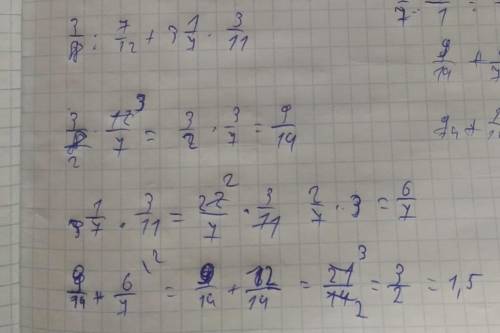 3/8 : 7/12 + 3 1/7 · 3/11
3/8 2 · 12/7 3 = 3/2 · 3/7 = 9/14
3 1/7 · 3/11 = 22/7 2 · 3/11 2/7 · 3 = 6/7
9/14 + 6/7 \2 = 9/14 + 12/14 = 21/14 3 2 = 3/2 = 1,5
7 1 =
9/14 +